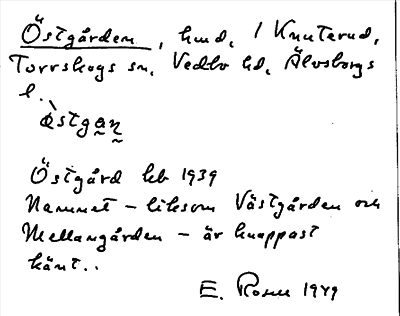 Östgården, hmd, i Knuterud,
Torrskogs sn. Vedbo hd, Älvsborgs
l.
östgan
Östgård kb 1939
Namnet – liksom Västgården och
Mellangården – är knappast
känt..
E. Rosell 1949